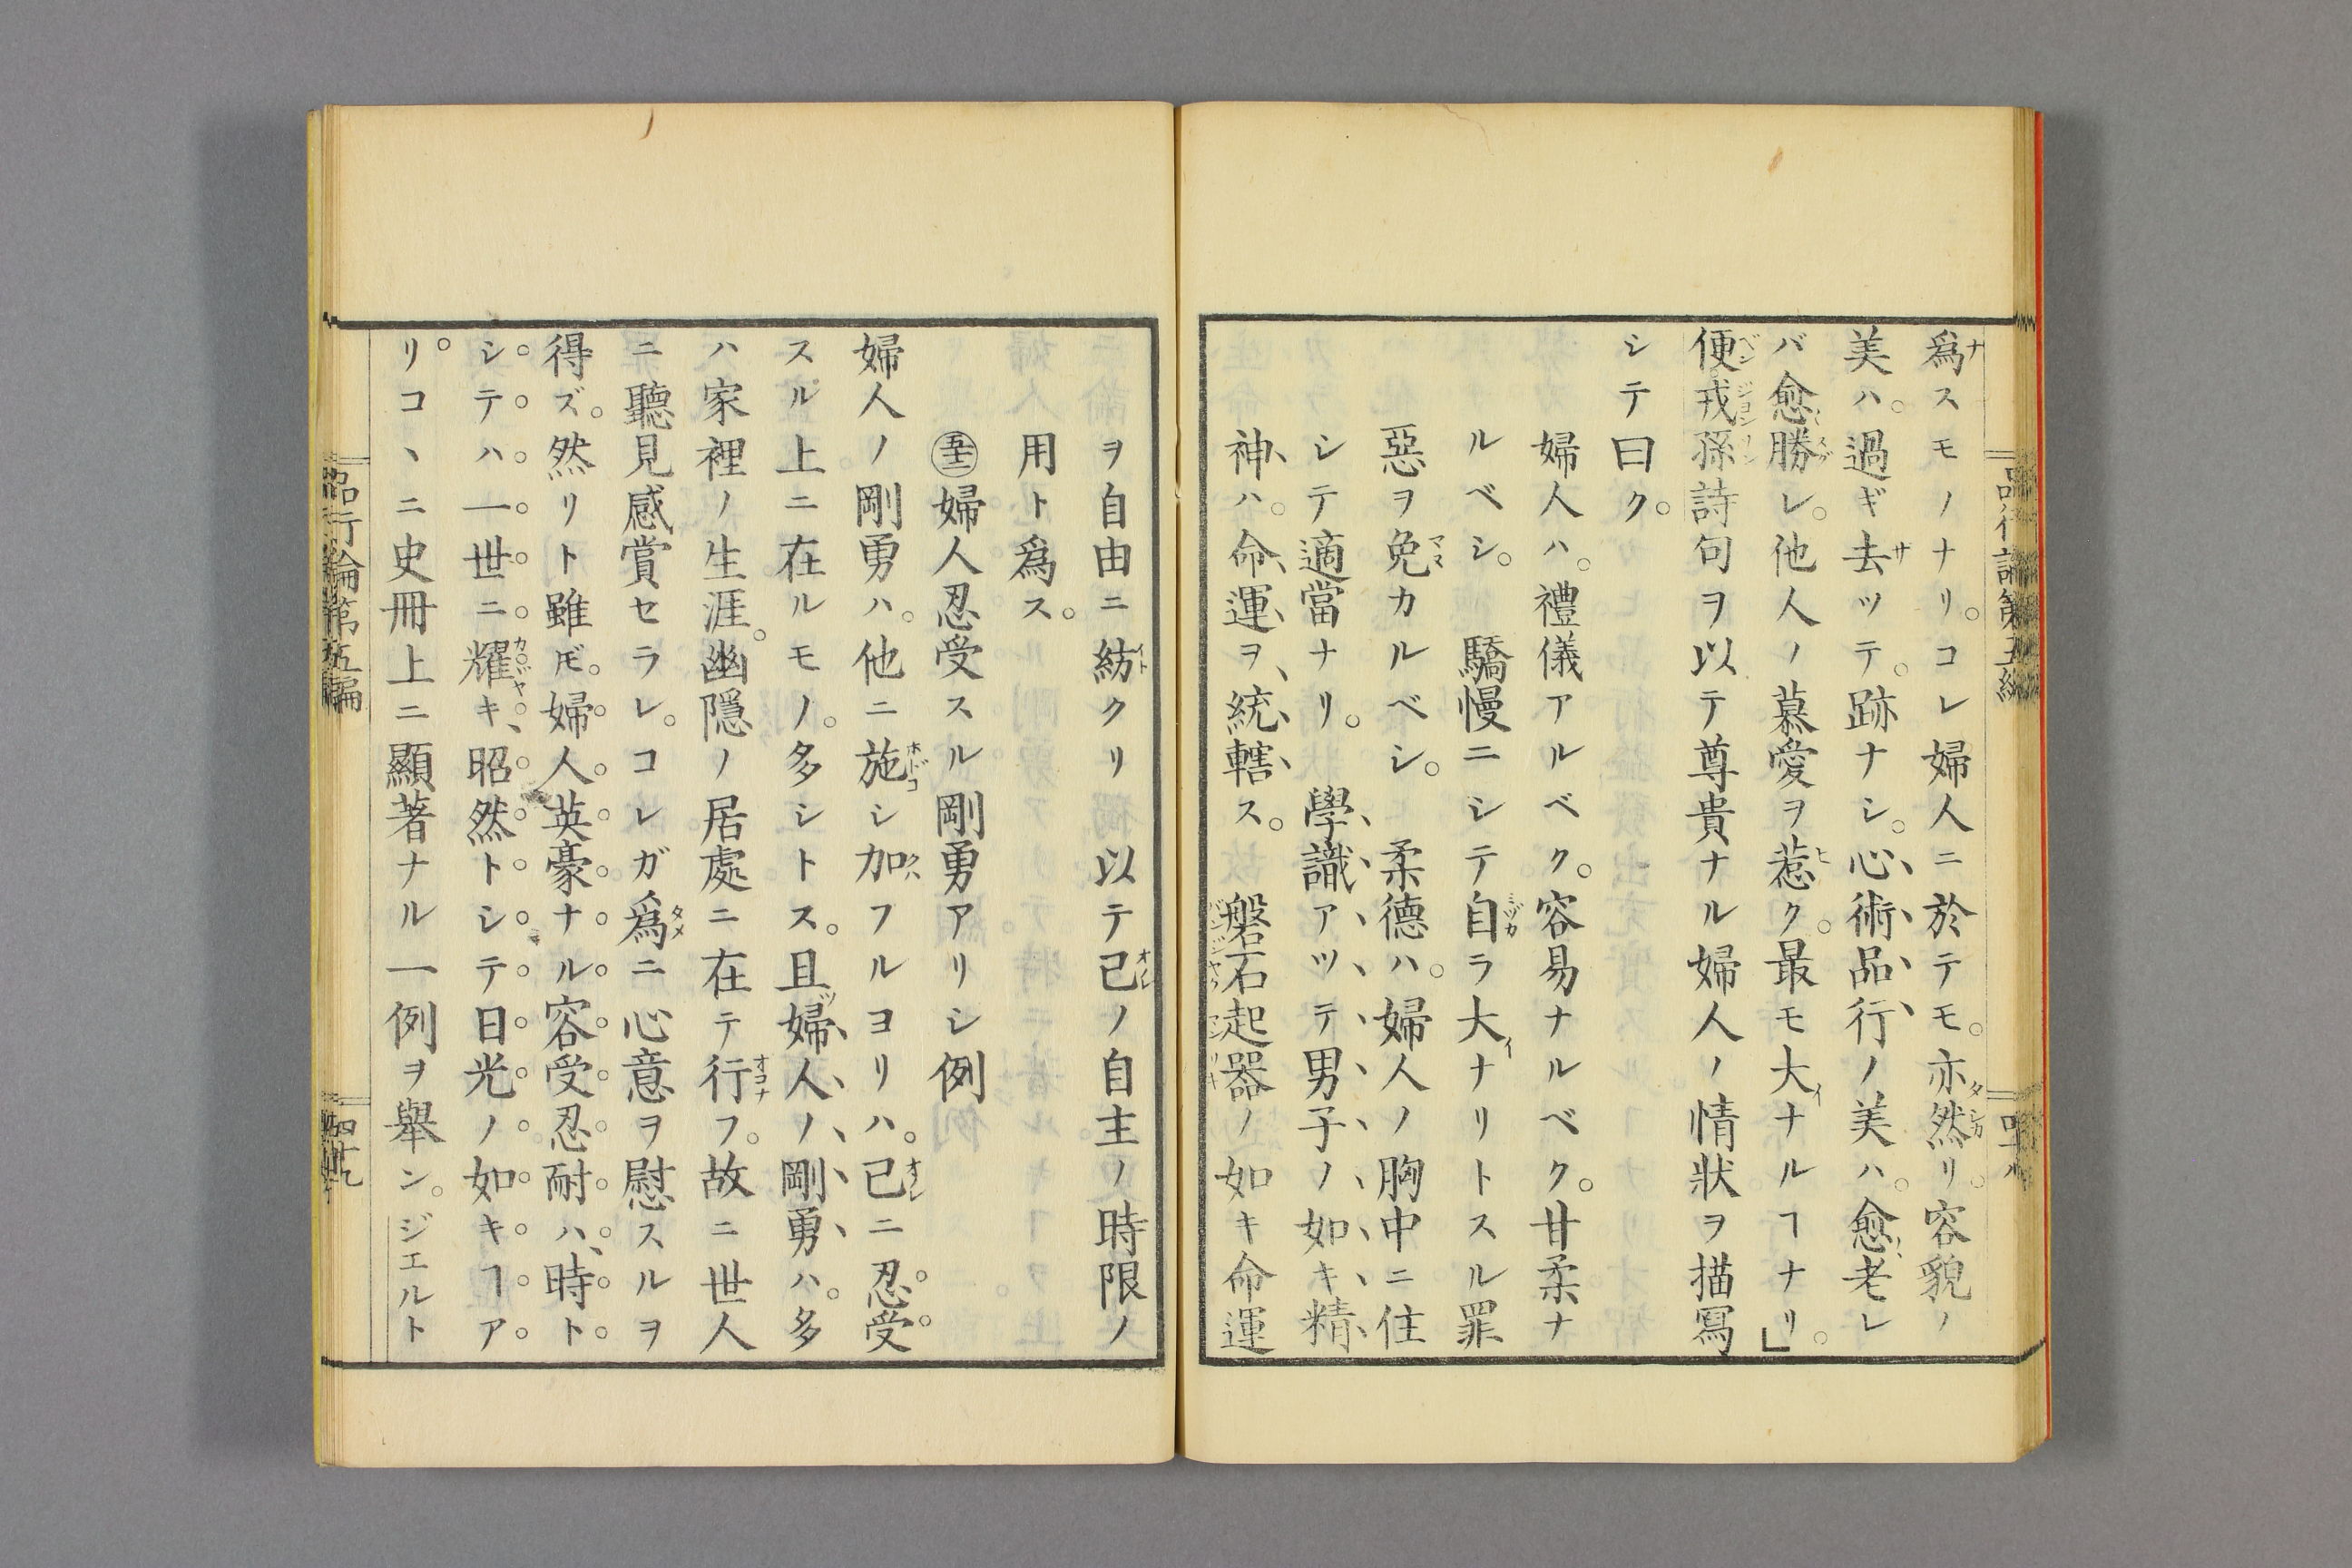 爲スモノナリ。コレ婦人ニ於テモ。亦然リ。容貌ノ
美ハ。過ギ去ツテ。跡ナシ。心術品行ノ美ハ。愈老レ
バ愈勝レ。他人ノ慕愛ヲ惹ク。最モ大ナルヿナリ。」
便戎孫詩句ヲ以テ尊貴ナル婦人ノ情狀ヲ描寫
シテ曰ク。
婦人ハ。禮儀アルベク。容易ナルベク。甘柔ナ
ルベシ。 驕慢ニシテ自ラ大ナリトスル罪
惡ヲ免カルベシ。 柔德ハ。婦人ノ胸中ニ住
シテ適當ナリ。 學識アツテ男子ノ如キ精
神ハ。命運ヲ統轄ス。 磐石起器ノ如キ命運
ヲ自由ニ紡クリ 以テ己ノ自主ノ時限ノ
用ト爲ス。
婦人忍受スル剛勇アリシ例
婦人ノ剛勇ハ。他ニ施シ加フルヨリハ。己ニ忍受
スル上ニ在ルモノ。多シトス。且婦人ノ剛勇ハ。多
ハ家裡ノ生涯。幽隱ノ居處ニ在テ行フ。故ニ世人
ニ聽見感賞セラレ。コレガ爲ニ心意ヲ慰スルヲ
得ズ。然リト雖𪜈。婦人英豪ナル容受忍耐ハ、時ト
シテハ一世ニ耀キ、昭然トシテ日光ノ如キヿア
リコヽニ史冊上ニ顯著ナル一例ヲ舉ン。ジエルト
品行論第五編
四十九